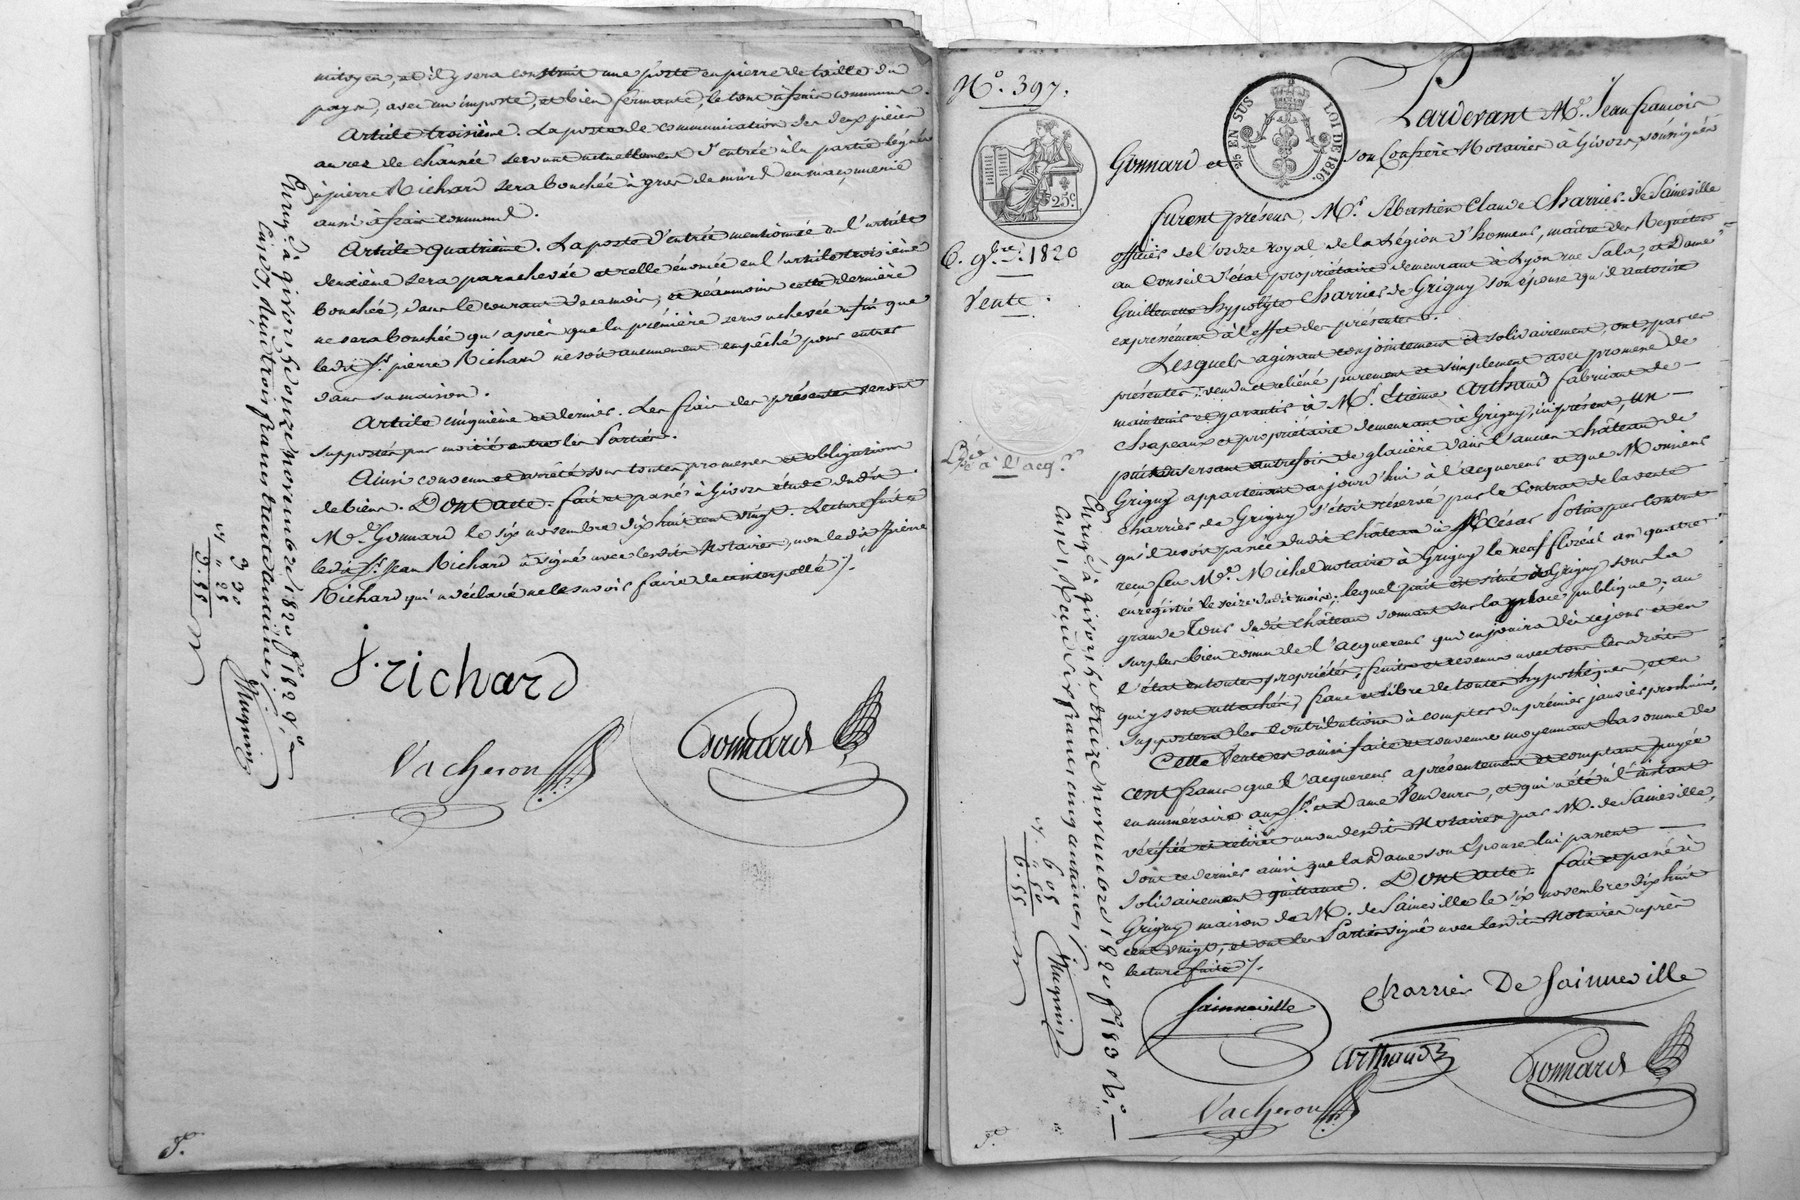 mitoyen, et il y sera construit une porte en pierre de taille du
pays, avec un imposte, et bien fermante, le tout à frais communs.
Article troisième. La porte de communication des deux pièces
au rez de chaussée servant actuellement d'entrée à la partie léguée
à pierre Richard sera bouchée à gros de mur et en maçonnerie
aussi à frais communs.
Article quatrième. La porte d'entrée mentionnée en l'article
deuxième sera parachevée et celle énoncée en l'article troisième
bouchée, dans le courant de ce mois, et néanmoins cette dernière
ne sera bouchée qu'après que la première sera achevée afin que
ledit Sr. pierre Richard ne soit aucunement empêché pour entrer
dans sa maison.
Article cinquième et dernier. Les frais des présentes seront
supportés par moitié entre les Parties.
Ainsi convenu et arrêté sous toutes promesses et obligations
de biens. Dont acte. fait et passé à Givors étude dudit
Me. Gonnard le six novembre dix huit cent vingt. Lecture faite
ledit Sr. Jean Richard a signé avec lesdits Notaires, non ledit pierre
Richard qui a déclaré ne le savoir faire de ce interpellé ./.
J. richard
Vacheron
Gonnard
Enrgé à givors le onze novembre 1820 fo 182 Vo
trois francs trente centimes
3 30
" 25
3. 55
Mugnin
N.o 397.
25c
25 EN SUS
LOI DE 1816.
6. 9bre 1820
Vente.
à l'acqr
Pardevant Me. Jean françois
Gonnard et son Confrère Notaires à Givors soussignés
furent présens, Mr. Sébastien Claude Charrier de Saineville
officier de l'ordre royal de la Légion d'honneur, maître des Requêtes
au Conseil d'état propriétaire demeurant à Lyon rue Sala, et Dame
Guillemette hypolyte Charrier de Grigny son épouse qu'il autorise
expressément à l'effet des présentes.
Lesquels agissant conjointement et solidairement, ont par ces
présentes vendu et reliéné purement et simplement avec promesse de
maintenir et garantir à Mr. Etienne Arthaud fabricant de
Chapeaux et propriétaire demeurant à Grigny, ici présent, un
puits servant autrefois de glacière dans l'ancien château de
Grigny appartenant aujourd'hui à l'acquereur et que Monsieur
Charrier de Grigny s'étoit réservé par le Contrat de la vente
qu'il avoit passée dudit château à Mr César Potin par Contrat
reçu feu Me. Michel notaire à Grigny le neuf floréal an quatre
enregistré le seize dudit mois; lequel puit est situé à Grigny sous la
grande Cour dudit château donnant sur la place publique; au
surplus bien connu de l'acquereur qui en jouira dès ce jour et en
l'état en toutes propriétés, fruits et revenus avec tous les droits
qui y sont attachés, franc et libre de toutes hypothèques, et en
supportera les Contributions à compter du premier janvier prochain.
Cette Vente est ainsi faite et convenue moyennant la somme de
cent francs que l'acquereur a présentement et comptant payée
en numéraire aux Sr. et Dame Vendeurs, et qui a été à l'instant
vérifiée et retirée au vu desdits Notaires par M. de Saineville,
dont ce dernier ainsi que la Dame son Epouse lui passent
solidairement quittance. Dont acte. fait et passé à
Grigny maison de M. de Saineville le six novembre dix huit
cent vingt, et ont les Parties signé avec lesdits Notaires après
lecture faite ./.
Sainneville
charrier De Sainneville
Arthaud
Gonnard
Vacheron
Enrgé à givors le treize novembre 1820 fo 183 Ro
six francs cinq centimes
6 05
" 50
6. 55
Mugnin